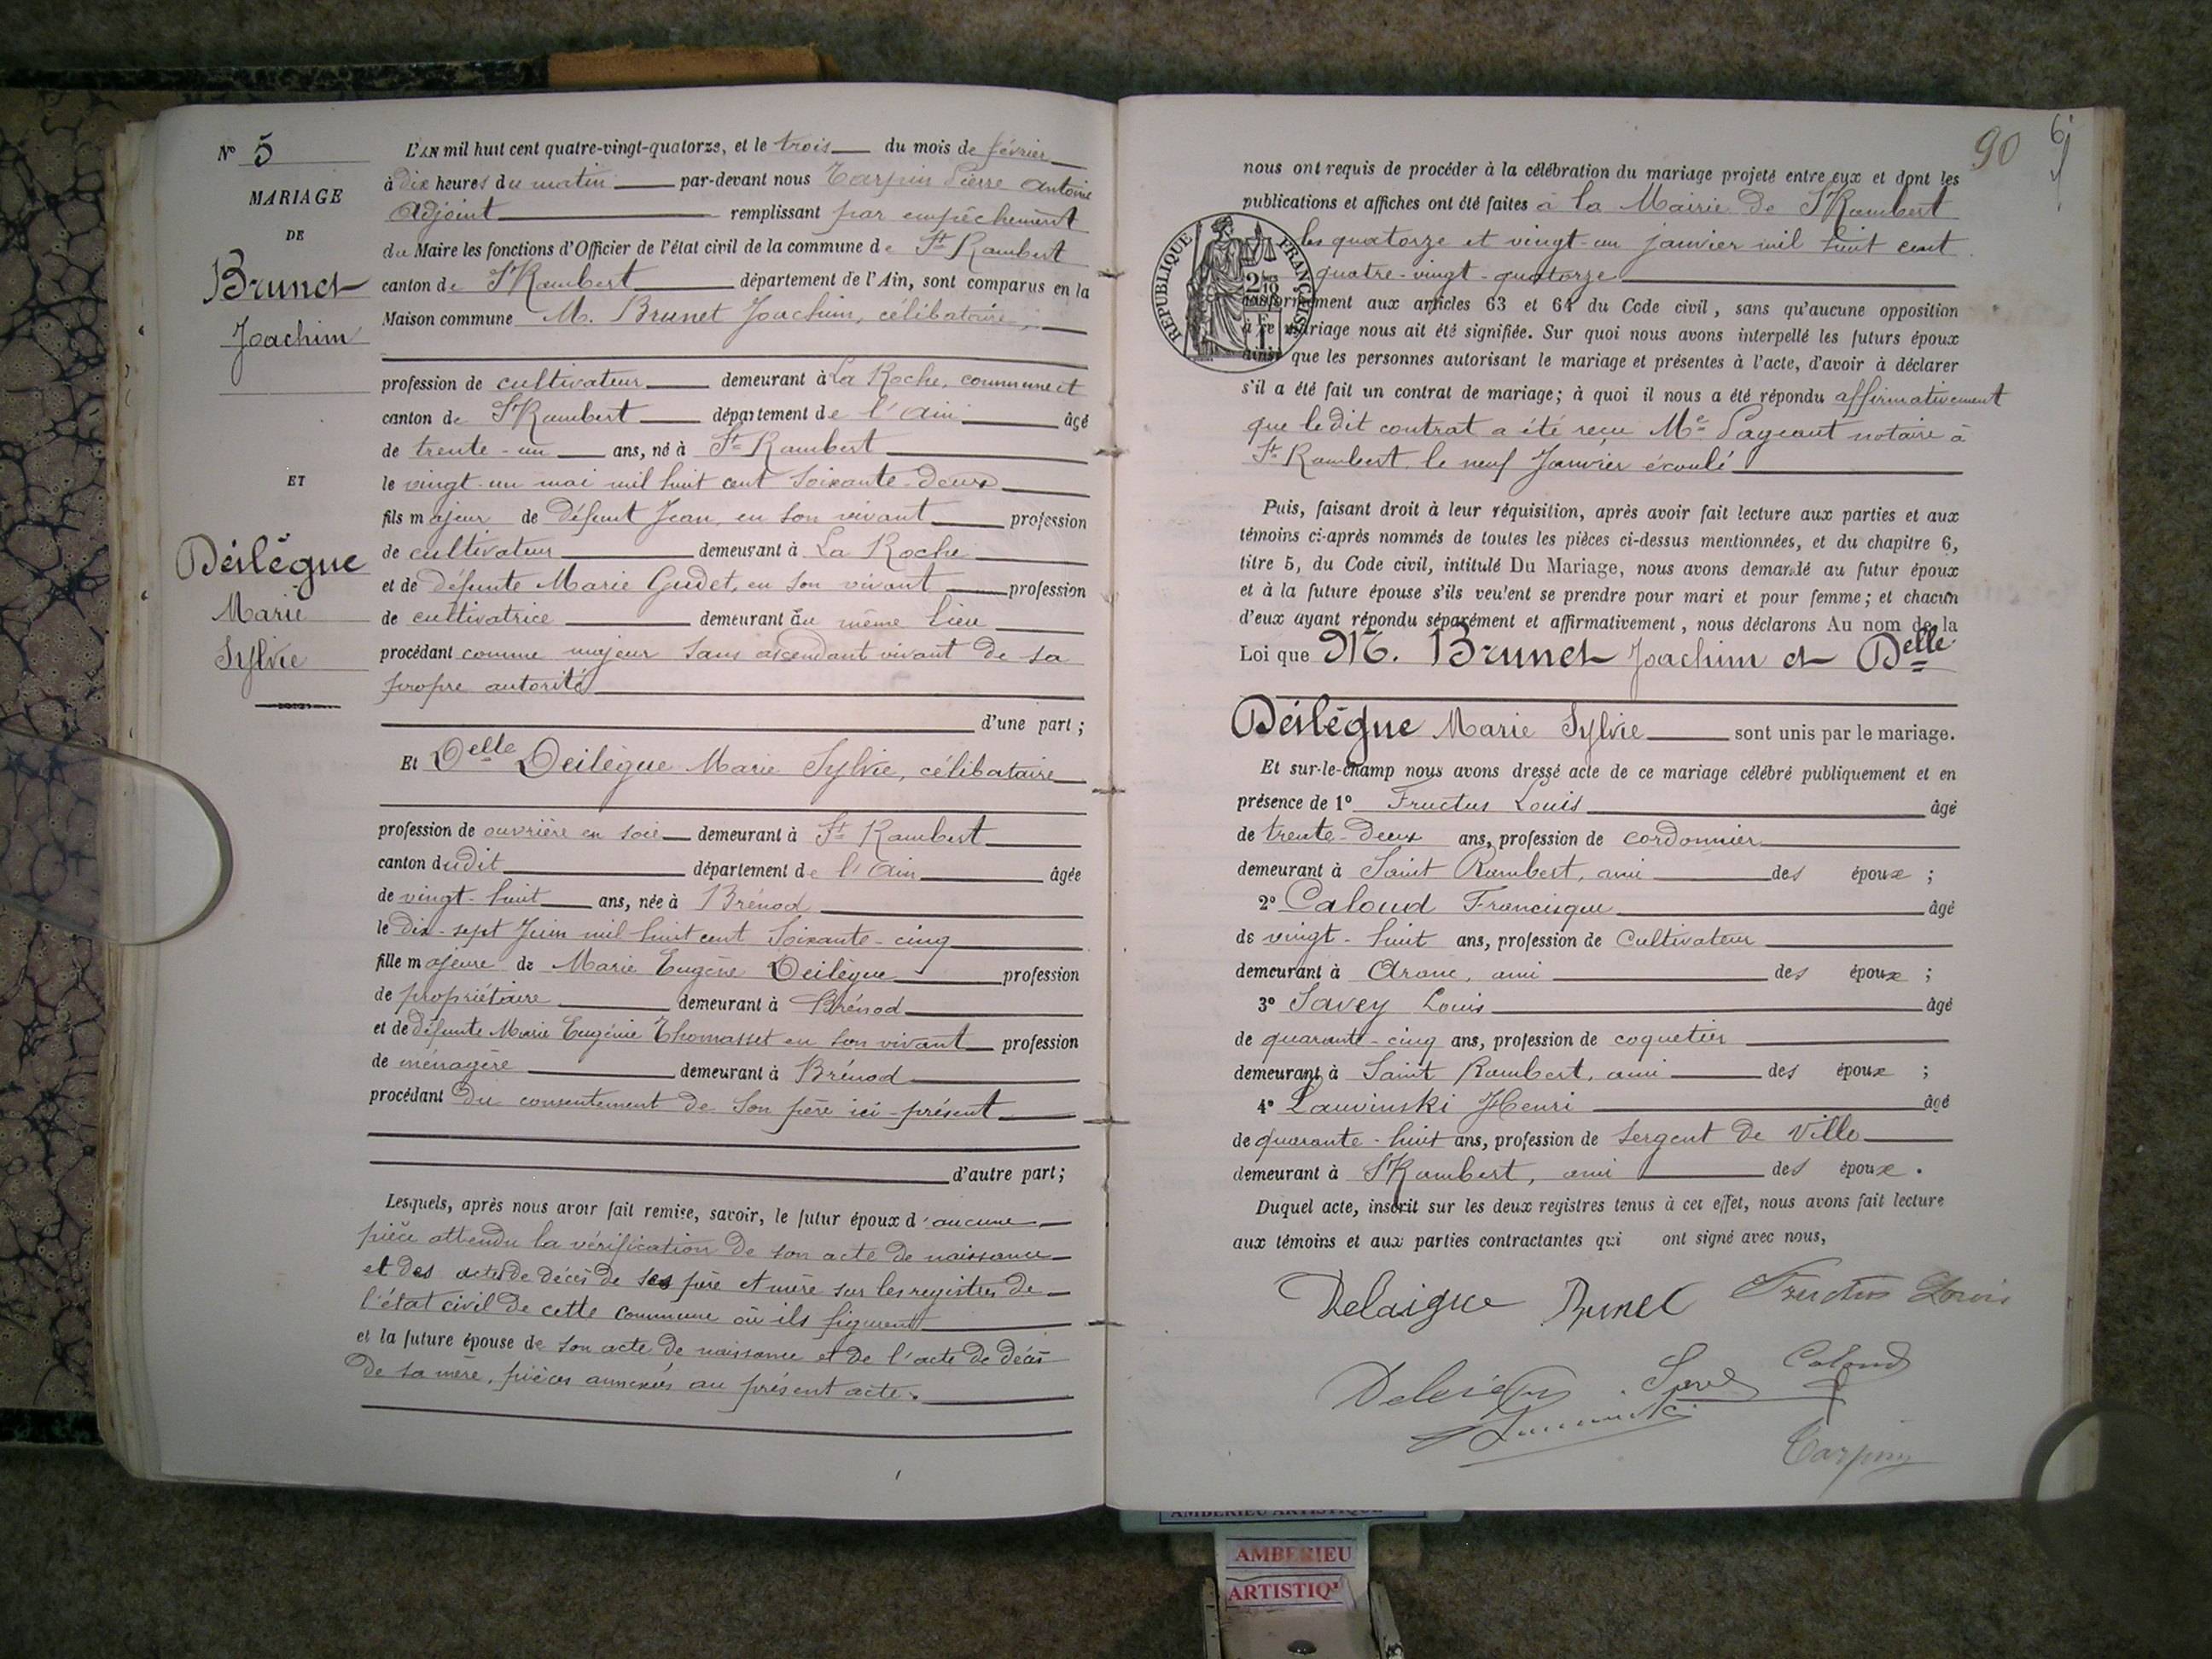 N° 5
MARIAGE
DE
Brunet
Joachim
ET
Deilègue
Marie
Sylvie
L'AN mil huit cent quatre-vingt-quatorze, et le trois du mois de février
à dix heures du matin par-devant nous Tarpin Pierre Antoine
Adjoint remplissant par empêchement
du Maire les fonctions d'Officier de l'état civil de la commune de St Rambert
canton de St Rambert département de l'Ain, sont comparus en la
Maison commune M. Brunet Joachim, célibataire,
profession de cultivateur demeurant à La Roche, commune et
canton de St Rambert département de l'Ain âgé
de trente-un ans, né à St Rambert
le vingt-un mai mil huit cent soixante-deux
fils majeur de défunt Jean, en son vivant profession
de cultivateur demeurant à La Roche
et de défunte Marie Gudet, en son vivant profession
de cultivatrice demeurant au même lieu
procédant comme majeur sans ascendant vivant de sa
propre autorité
d'une part;
Et Delle Deilègue Marie Sylvie, célibataire
profession de ouvrière en soie demeurant à St Rambert
canton dudit département de l'Ain âgée
de vingt-huit ans, née à Brénod
le dix-sept Juin mil huit cent soixante-cinq
fille majeure de Marie Eugène Deilègue profession
de propriétaire demeurant à Brénod
et de défunte Marie Eugénie Thomasset en son vivant profession
de ménagère demeurant à Brénod
procédant du consentement de son père ici-présent
d'autre part;
Lesquels, après nous avoir fait remise, savoir, le futur époux d'aucune
pièce attendu la vérification de son acte de naissance
et des actes de décès de ses père et mère sur les registres de
l'état civil de cette commune où ils figurent
et la future épouse de son acte de naissance et de l'acte de décès
de sa mère, pièces annexées au présent acte.
90
nous ont requis de procéder à la célébration du mariage projeté entre eux et dont les
publications et affiches ont été faites à la Mairie de St Rambert
les quatorze et vingt-un janvier mil huit cent
quatre-vingt-quatorze
RÉPUBLIQUE FRANÇAISE
conformément aux articles 63 et 64 du Code civil, sans qu'aucune opposition
à ce mariage nous ait été signifiée. Sur quoi nous avons interpellé les futurs époux
ainsi que les personnes autorisant le mariage et présentes à l'acte, d'avoir à déclarer
s'il a été fait un contrat de mariage; à quoi il nous a été répondu affirmativement
que ledit contrat a été reçu Me Pageaut notaire à
St Rambert le neuf Janvier écoulé
Puis, faisant droit à leur réquisition, après avoir fait lecture aux parties et aux
témoins ci-après nommés de toutes les pièces ci-dessus mentionnées, et du chapitre 6,
titre 5, du Code civil, intitulé Du Mariage, nous avons demandé au futur époux
et à la future épouse s'ils veulent se prendre pour mari et pour femme; et chacun
d'eux ayant répondu séparément et affirmativement, nous déclarons Au nom de la
Loi que M. Brunet Joachim et Delle
Deilègue Marie Sylvie sont unis par le mariage.
Et sur-le-champ nous avons dressé acte de ce mariage célébré publiquement et en
présence de 1° Fructus Louis âgé
de trente-deux ans, profession de cordonnier
demeurant à Saint Rambert, ami des époux ;
2° Caloud Francisque âgé
de vingt-huit ans, profession de Cultivateur
demeurant à Aranc, ami des époux ;
3° Savey Louis âgé
de quarante-cinq ans, profession de coquetier
demeurant à Saint Rambert, ami des époux ;
4° Lauvinski Henri âgé
de quarante-huit ans, profession de sergent de ville
demeurant à St Rambert, ami des époux.
Duquel acte, inscrit sur les deux registres tenus à cet effet, nous avons fait lecture
aux témoins et aux parties contractantes qui ont signé avec nous,
Delaigue Brunet Fructus Louis
Caloud
Tarpin
AMBERIEU ARTISTIQUE
AMBERIEU
ARTISTIQ